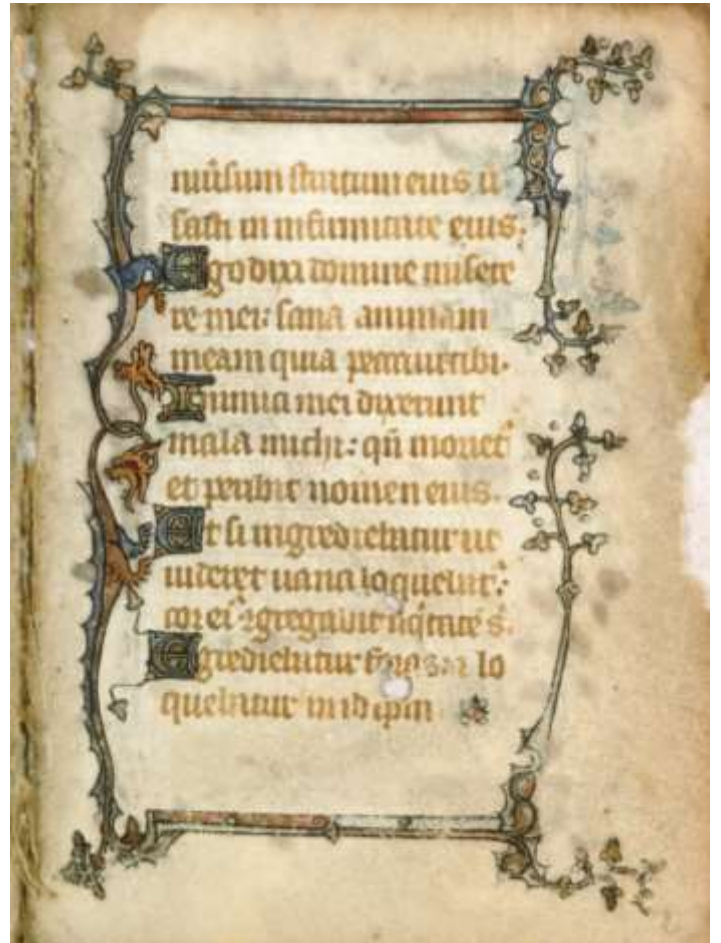 niūsum stratum eius ū
sasti in infirmitate eius.
Ego dixi domine misere
re mei: sana animam
meam quia peccaui tibi.
Inimici mei dixerunt
mala michi: qn̄ moriet᷑
et peribit nomen eius.
Et si ingrediebatur ut
uideret uana loquebat᷑:
cor ei⁹
Egrediebatur foras lo
quebatur in id ipm